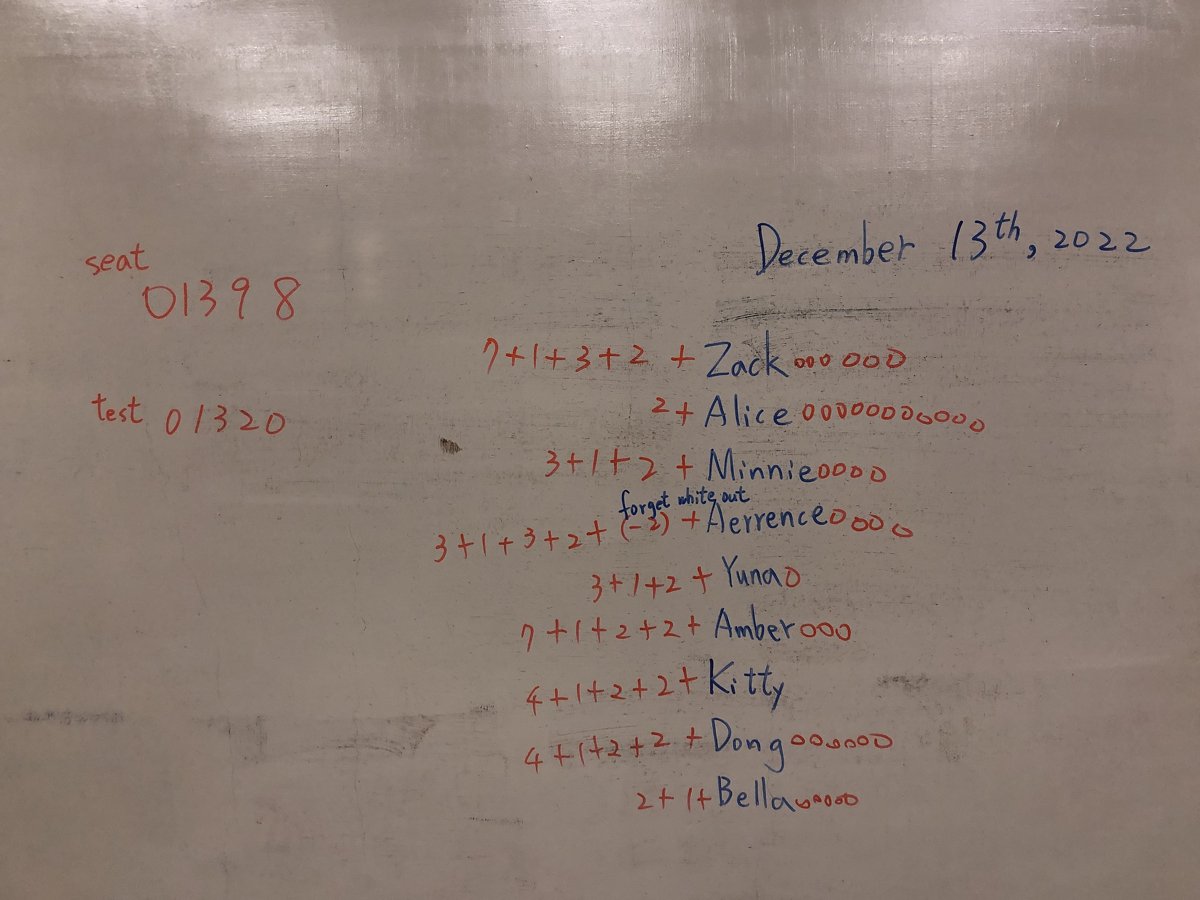 December 13th, 2022
seat
01398
test 01320
7+1+3+2 + Zack oooooo
2+ Alice ooooooooooo
3+1+2 + Minnie oooo
forget white out
3+1+3+2+(-2) + Aerrence oooo
3+1+2 + Yuna o
7+1+2+2+ Amber ooo
4+1+2+2+ Kitty
4+1+2+2 + Dong oooooo
2+1+ Bella ooooo